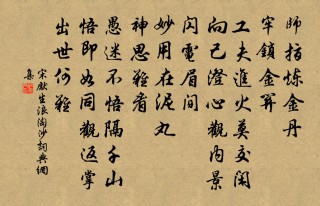 師指炼金丹
牢鎖金關
工夫進火莫交闲
向己澄心觀内景
闪電眉间
妙用在泥丸
神思難看
愚迷不悟隔千山
悟即如同觀返掌
出世何難
宋獻生浪淘沙詞典網
集